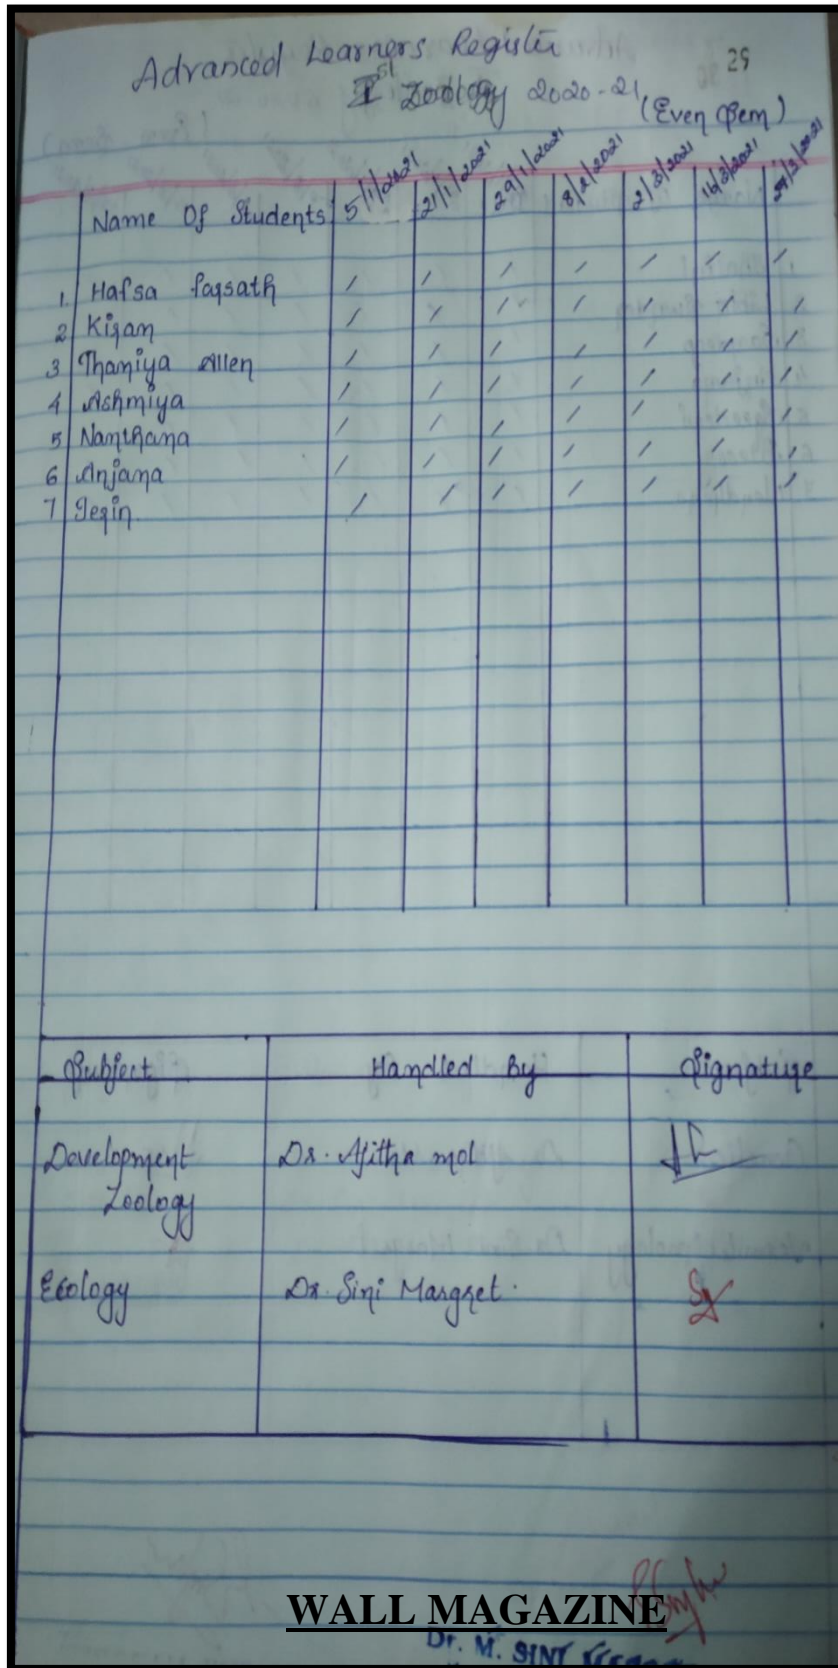 Advanced Learners Register
29
Ist Zoology 2020-21 (Even Sem)
Name Of Students 5/1/2021 21/1/2021 29/1/2021 8/2/2021 2/3/2021 16/3/2021 /3/2021
1. Hafsa Parsath / / / / / / /
2 Kiran / / / / / / /
3 Thaniya Allen / / / / / / /
4 Ashmiya / / / / / / /
5 Nanthana / / / / / / /
6 Anjana / / / / / / /
7 Jerin. / / / / / / /
Subject Handled By Signature
Development Dr. Ajitha mol
Zoology
Ecology Dr. Sini Margret.
WALL MAGAZINE
Dr. M. SINI